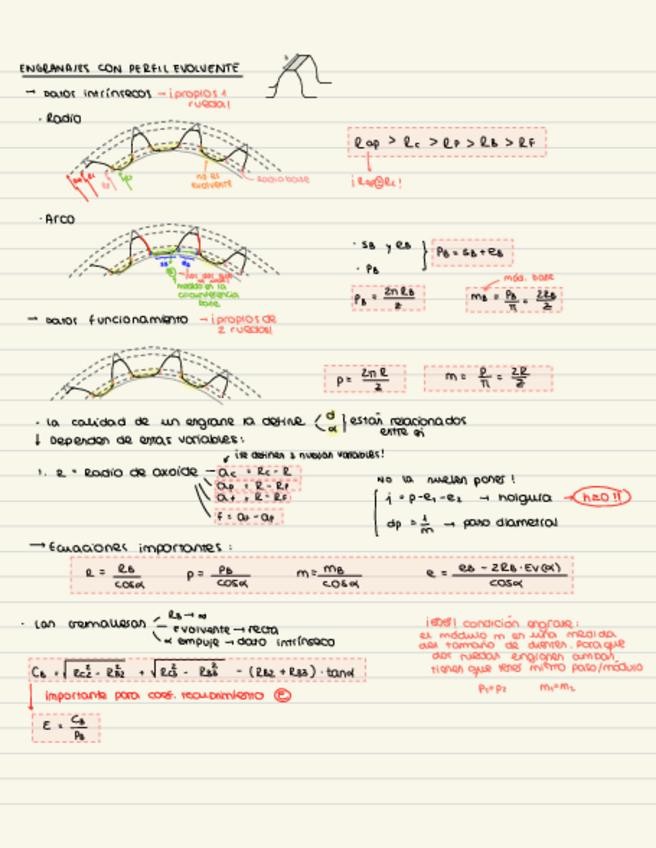 ENGRANAJES CON PERFIL EVOLVENTE
→ Datos intrínsecos → ¡propios 1
rueda!
· Radio
Rap > Rc > Rp > RB > RF
no es
evolvente
Radio base
· Arco
· sB y eB
· PB
PB = sB + eB
mód. base
PB = 2πRB / z
mB = PB / π = 2RB / z
medido en la
circunferencia
base
→ Datos funcionamiento → ¡propios de
2 ruedas!
p = 2πR / z
m = p / π = 2R / z
· La calidad de un engrane la define d α } están relacionados
entre sí
↓ Dependen de estas variables:
¡se definen 3 nuevas variables!
1. R = Radio de axoide → ac = Rc - R
ap = R - Rp
af = R - RF
f = af - ap
No la suelen poner!
j = p - e1 - e2 → holgura → h=0 !!
dp = 1/m → paso diametral
→ Ecuaciones importantes:
R = RB / cosα p = PB / cosα m = mB / cosα e = eB - 2RB · EV(α) / cosα
· Las cremalleras RB → ∞
Evolvente → recta
α empuje → dato intrínseco
condición engrane:
el módulo m es una medida
del tamaño de dientes. Para que
dos ruedas engranen ambas
tienen que tener mismo paso/módulo
p1 = p2 m1 = m2
CB = √Rc2² - RB2² + √Rc3² - RB3² - (RB2 + RB3) · tanα
importante para coef. recubrimiento ε
ε = CB / PB